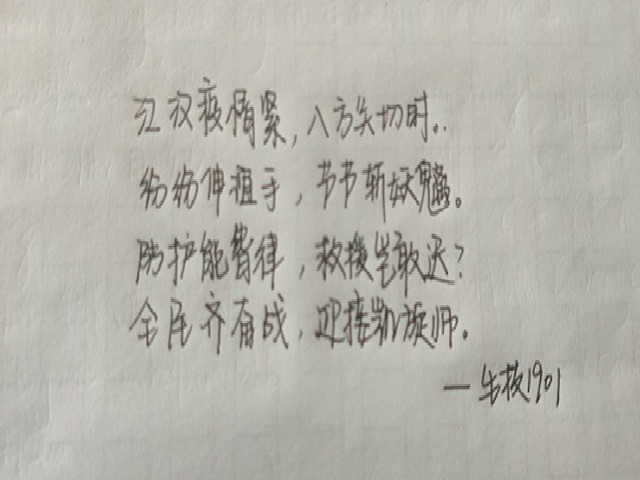 江汉疫情紧，八方关切时。
纷纷伸祖手，节节斩妖魑。
防护能智律，救援岂敢迟？
全民齐奋战，迎接凯旋师。
—生技1901